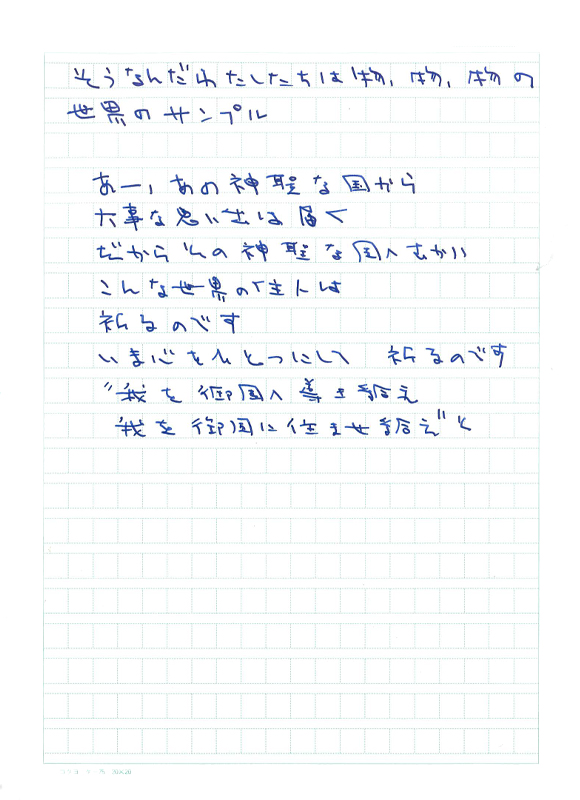 そうなんだわたしたちは物，物，物の
世界のサンプル
あー，あの神聖な国から
大事な思い出は届く
だからその神聖な国へむかい
こんな世界の住人は
祈るのです
いま心をひとつにして　祈るのです
“我を御国へ導き給え
我を御国に住ませ給え”と